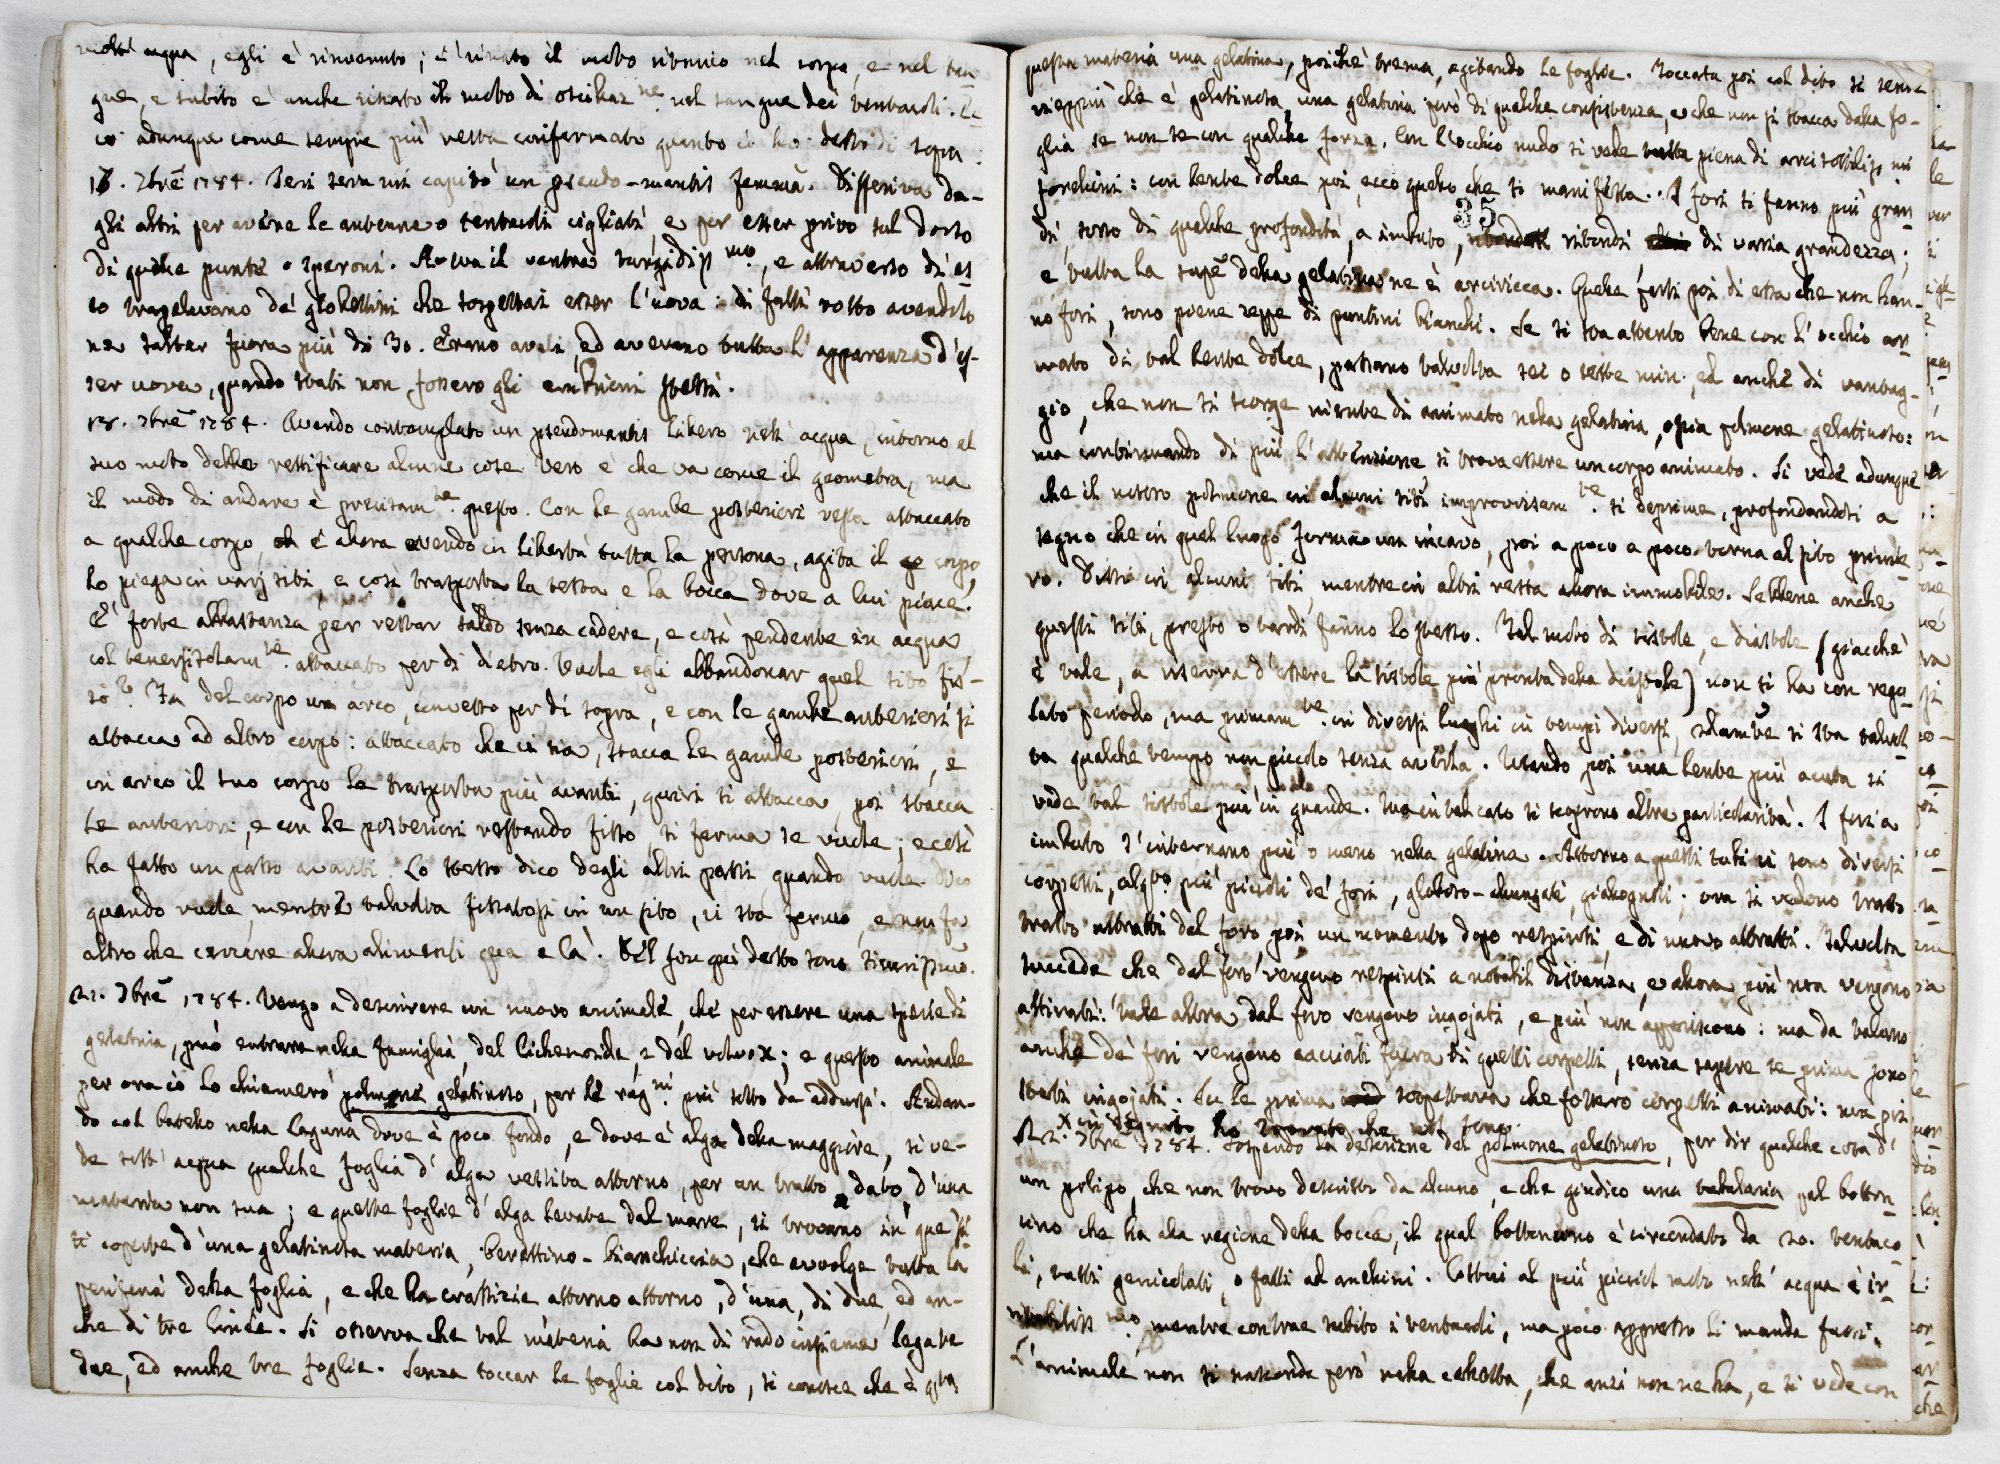 molt' acqua, egli è rinvenuto; è rinato il moto ritmico nel corpo, e nel
gue, e subito è anche rinato il moto di oscillaz.ne nel sangue dei tentacoli. Ec-
co adunque come sempre più resta confermato quanto io ho detto di sopra.
7bre 1784. Ieri sera mi capitò un pseudo-mantis femmina. Differiva da-
gli altri per avere le antenne o tentacoli cigliati e per esser privo sul dorso
di quelle punte o speroni. Aveva il ventre turgidiss.mo, e attraverso di es
so tragelavano de' globettini che sospettai esser l'uova: di fatti rotto avendolo
ne saltar fuora più di 30. Erano ovali, ed avevano tutta l'apparenza d'es-
ser uova, quando stati non fossero gli embrioni stessi.
18. 7bre 1784. Avendo contemplato un pseudomantis libero nell' acqua, intorno al
suo moto debbo rettificare alcune cose. Vero è che va come il geometra, ma
il modo di andare è precisam.te questo. Con le gambe posteriori resta attaccato
a qualche corpo, e allora avendo in libertà tutta la persona, agita il corpo,
lo piega in varj siti, e così trasporta la testa e la bocca dove a lui piace.
E' forte abbastanza per restar saldo senza cadere, e così pendente in acqua
col benefizio solam.te attaccato per di dietro. Vuole egli abbandonar quel sito fis-
so? Fa del corpo un arco, convesso per di sopra, e con le gambe anteriori si
attacca ad altro corpo: attaccato che ci sia, stacca le gambe posteriori, e
in arco il suo corpo le trasporta più avanti, quivi si attacca, poi stacca
le anteriori, e con le posteriori restando fisso, si ferma se vuole; e così
ha fatto un passo avanti. Lo stesso dico degli altri passi, quando vuole. Dico
quando vuole, mentre talvolta fissatosi in un sito, ci sta fermo, e non fa
altro che cercare allora alimenti qua e là. Del fin qui detto sono sicurissimo.
21. 7bre 1784. Vengo a descrivere un nuovo animale, che per essere una specie di
gelatina, può entrare nella famiglia del lichenoide e del volvox; e questo animale
per ora io lo chiamerò polmone gelatinoso, per le rag.ni più sotto da addursi. Andan-
do col battello nella laguna dove è poco fondo, e dove è alga della maggiore, si ve-
de sott' acqua qualche foglia d' alga vestita attorno, per un tratto dato, d'una
materia non sua; e queste foglie d' alga levate dal mare, si trovano in que' si
ti coperte d'una gelatinosa materia, berettino-bianchiccia, che avvolge tutta la
periferia della foglia, e che ha crassizie attorno attorno, d'una, di due, ed an-
che di tre linee. Si osserva che tal materia ha non di rado insieme legate
due, ed anche tre foglie. Senza toccar le foglie col dito, si conosce che è q.ta
questa materia una gelatina, poichè trema, agitando le foglie. Toccata poi col dito si sente
vieppiù che è gelatinosa, una gelatina però di qualche consistenza, e che non si stacca dalla fo-
glia se non se con qualche forza. Con l'occhio nudo si vede piena di arcisottiliss.mi
forellini: con lente dolce poi, ecco quello che si manifesta. I fori si fanno più gran
di, sono di qualche profondità, a imbuto, ritondi di varia grandezza;
35
e tutta la supe della gelatina ne è arciricca. Quelle parti poi di essa che non han-
no fori, sono piene zeppe di puntini bianchi. Se si sta attento bene con l' occhio ar-
mato di tal lente dolce, passano talvolta sei o sette min. ed anche di vantag-
gio, che non si scorge niente di animato nella gelatina, o sia polmone gelatinoso:
ma continuando di più l'attenzione si trova essere un corpo animato. Si vede adunque
che il nostro polmone in alcuni siti improvvisam.te si deprime, profondandosi a
segno che in quel luogo forma un incavo, poi a poco a poco torna al sito prime-
ro. Dissi in alcuni siti, mentre in altri resta allora immobile. Sebbene anche
questi siti, presto o tardi, fanno lo stesso. Tal moto di sistole, e diastole (giacchè
è tale, a riserva d' essere la sistole più pronta della diastole) non si ha con rego
lato periodo, ma primam.te in diversi luoghi in tempi diversi, si sta talvol
ta qualche tempo non piccolo senza averla. Usando poi una lente più acuta si
vede tal sistole più in grande. Ma in tal caso si scoprono altre particolarità. I fori a
imbuto s' internano più o meno nella gelatina. Attorno a questi tubi ci sono diversi
corpetti, alq.to più piccioli de' fori, globoso-allungati, giallognoli; ora si vedono tratto
tratto attratti dal foro poi un momento dopo respinti, e di nuovo attratti. Talvolta
succede che dal foro vengono respinti a notabil distanza, e allora più non vengono
attirati: tale altra dal foro vengono ingojati, e più non appariscono: ma da taluno
anche de' fori vengono cacciati fuora di quelli corpetti, senza sapere se prima sono
stati ingojati. Su le prime sospettava che fossero corpetti animati: ma poi
x in seguito ho trovato che nol sono.
22. 7bre 1784. Sospendo la descrizione del polmone gelatinoso, per dir qualche cosa d'
un polipo, che non trovo descritto da alcuno, e che giudico una tubularia pel botton
cino che ha alla regione della bocca, il qual bottoncino è circondato da 20. tentaco
li, tutti genicolati, o fatti ad anellini. Costui al più picciol moto nell' acqua è ir-
ritabiliss.mo, mentre contrae subito i tentacoli, ma poco appresso li manda fuori.
L' animale non si nasconde però nella cellotta, che anzi non ne ha, e si vede con